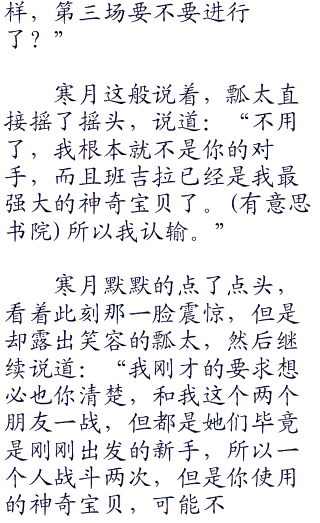 样，第三场要不要进行
了？”
寒月这般说着，瓢太直
接摇了摇头，说道：“不用
了，我根本就不是你的对
手，而且班吉拉已经是我最
强大的神奇宝贝了。(有意思
书院)所以我认输。”
寒月默默的点了点头，
看着此刻那一脸震惊，但是
却露出笑容的瓢太，然后继
续说道：“我刚才的要求想
必也你清楚，和我这个两个
朋友一战，但都是她们毕竟
是刚刚出发的新手，所以一
个人战斗两次，但是你使用
的神奇宝贝，可能不